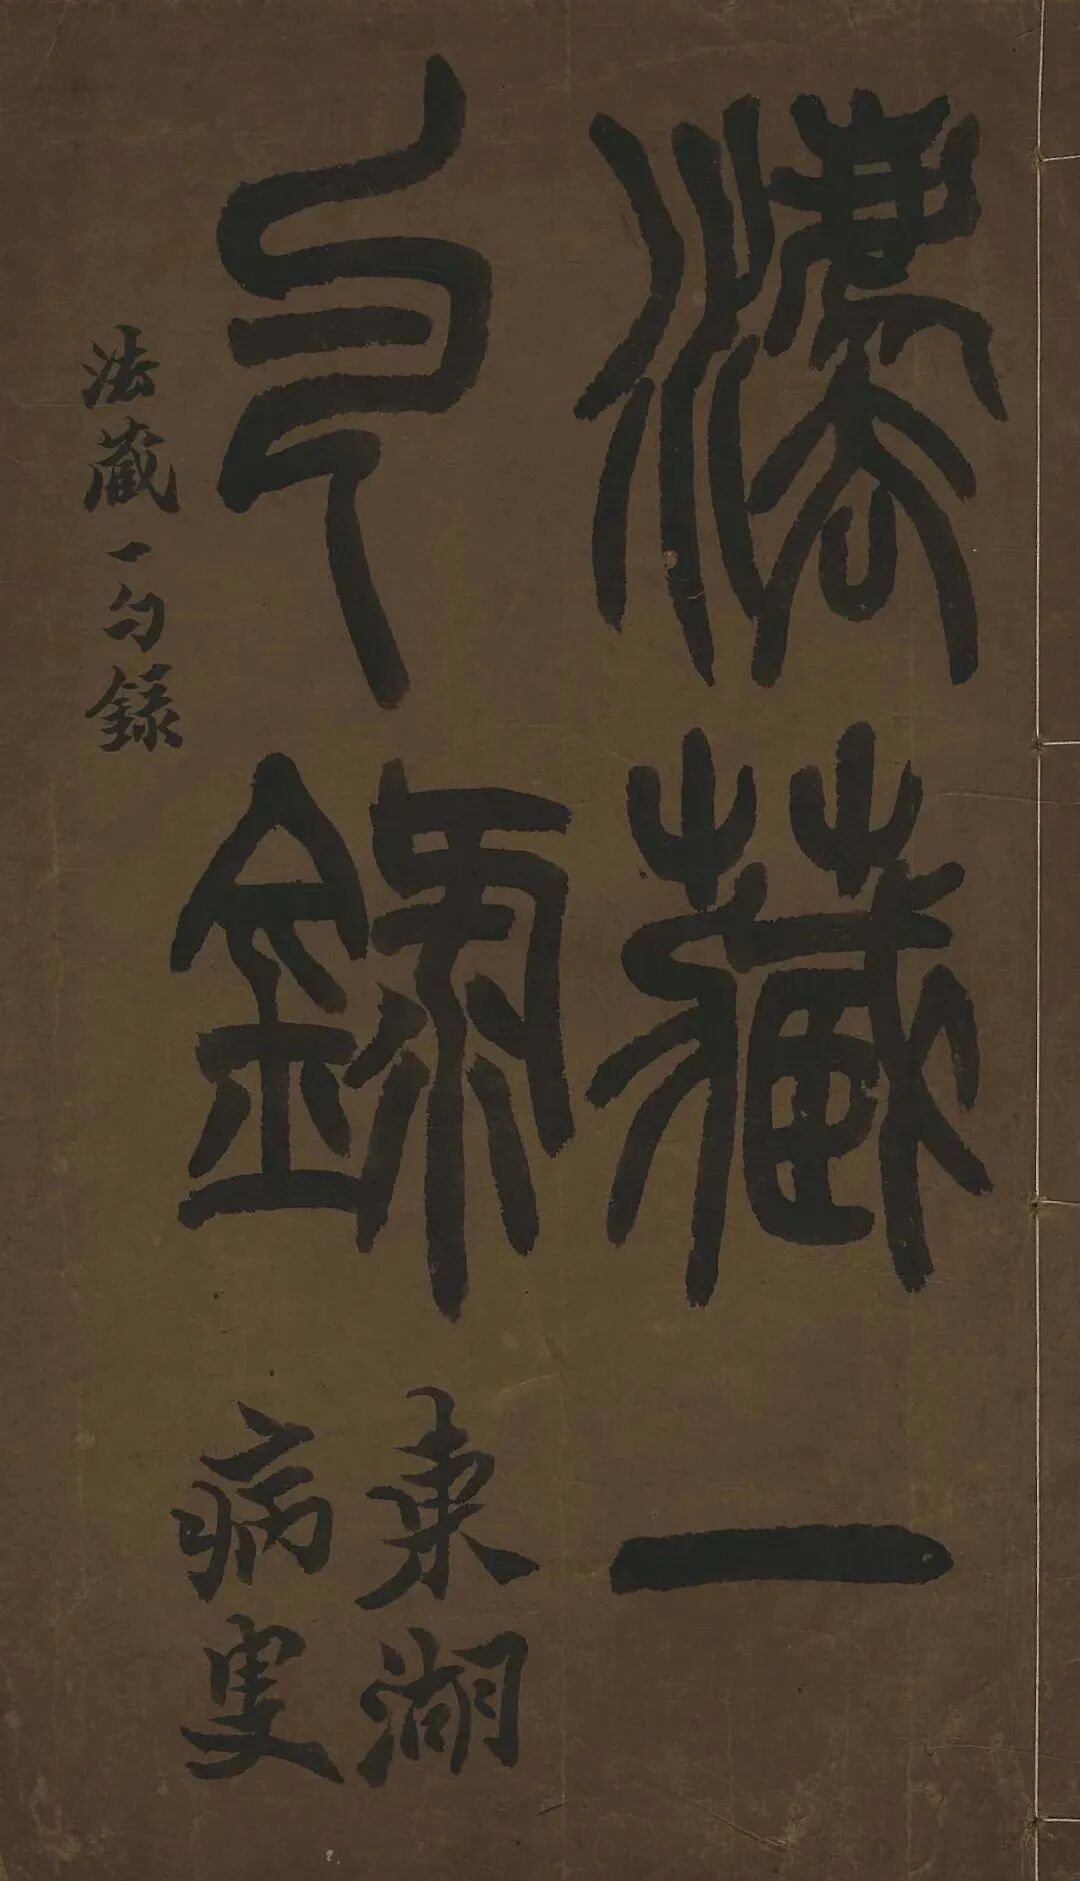 灋藏一
勺録
東湖
病叟
法藏一勺録